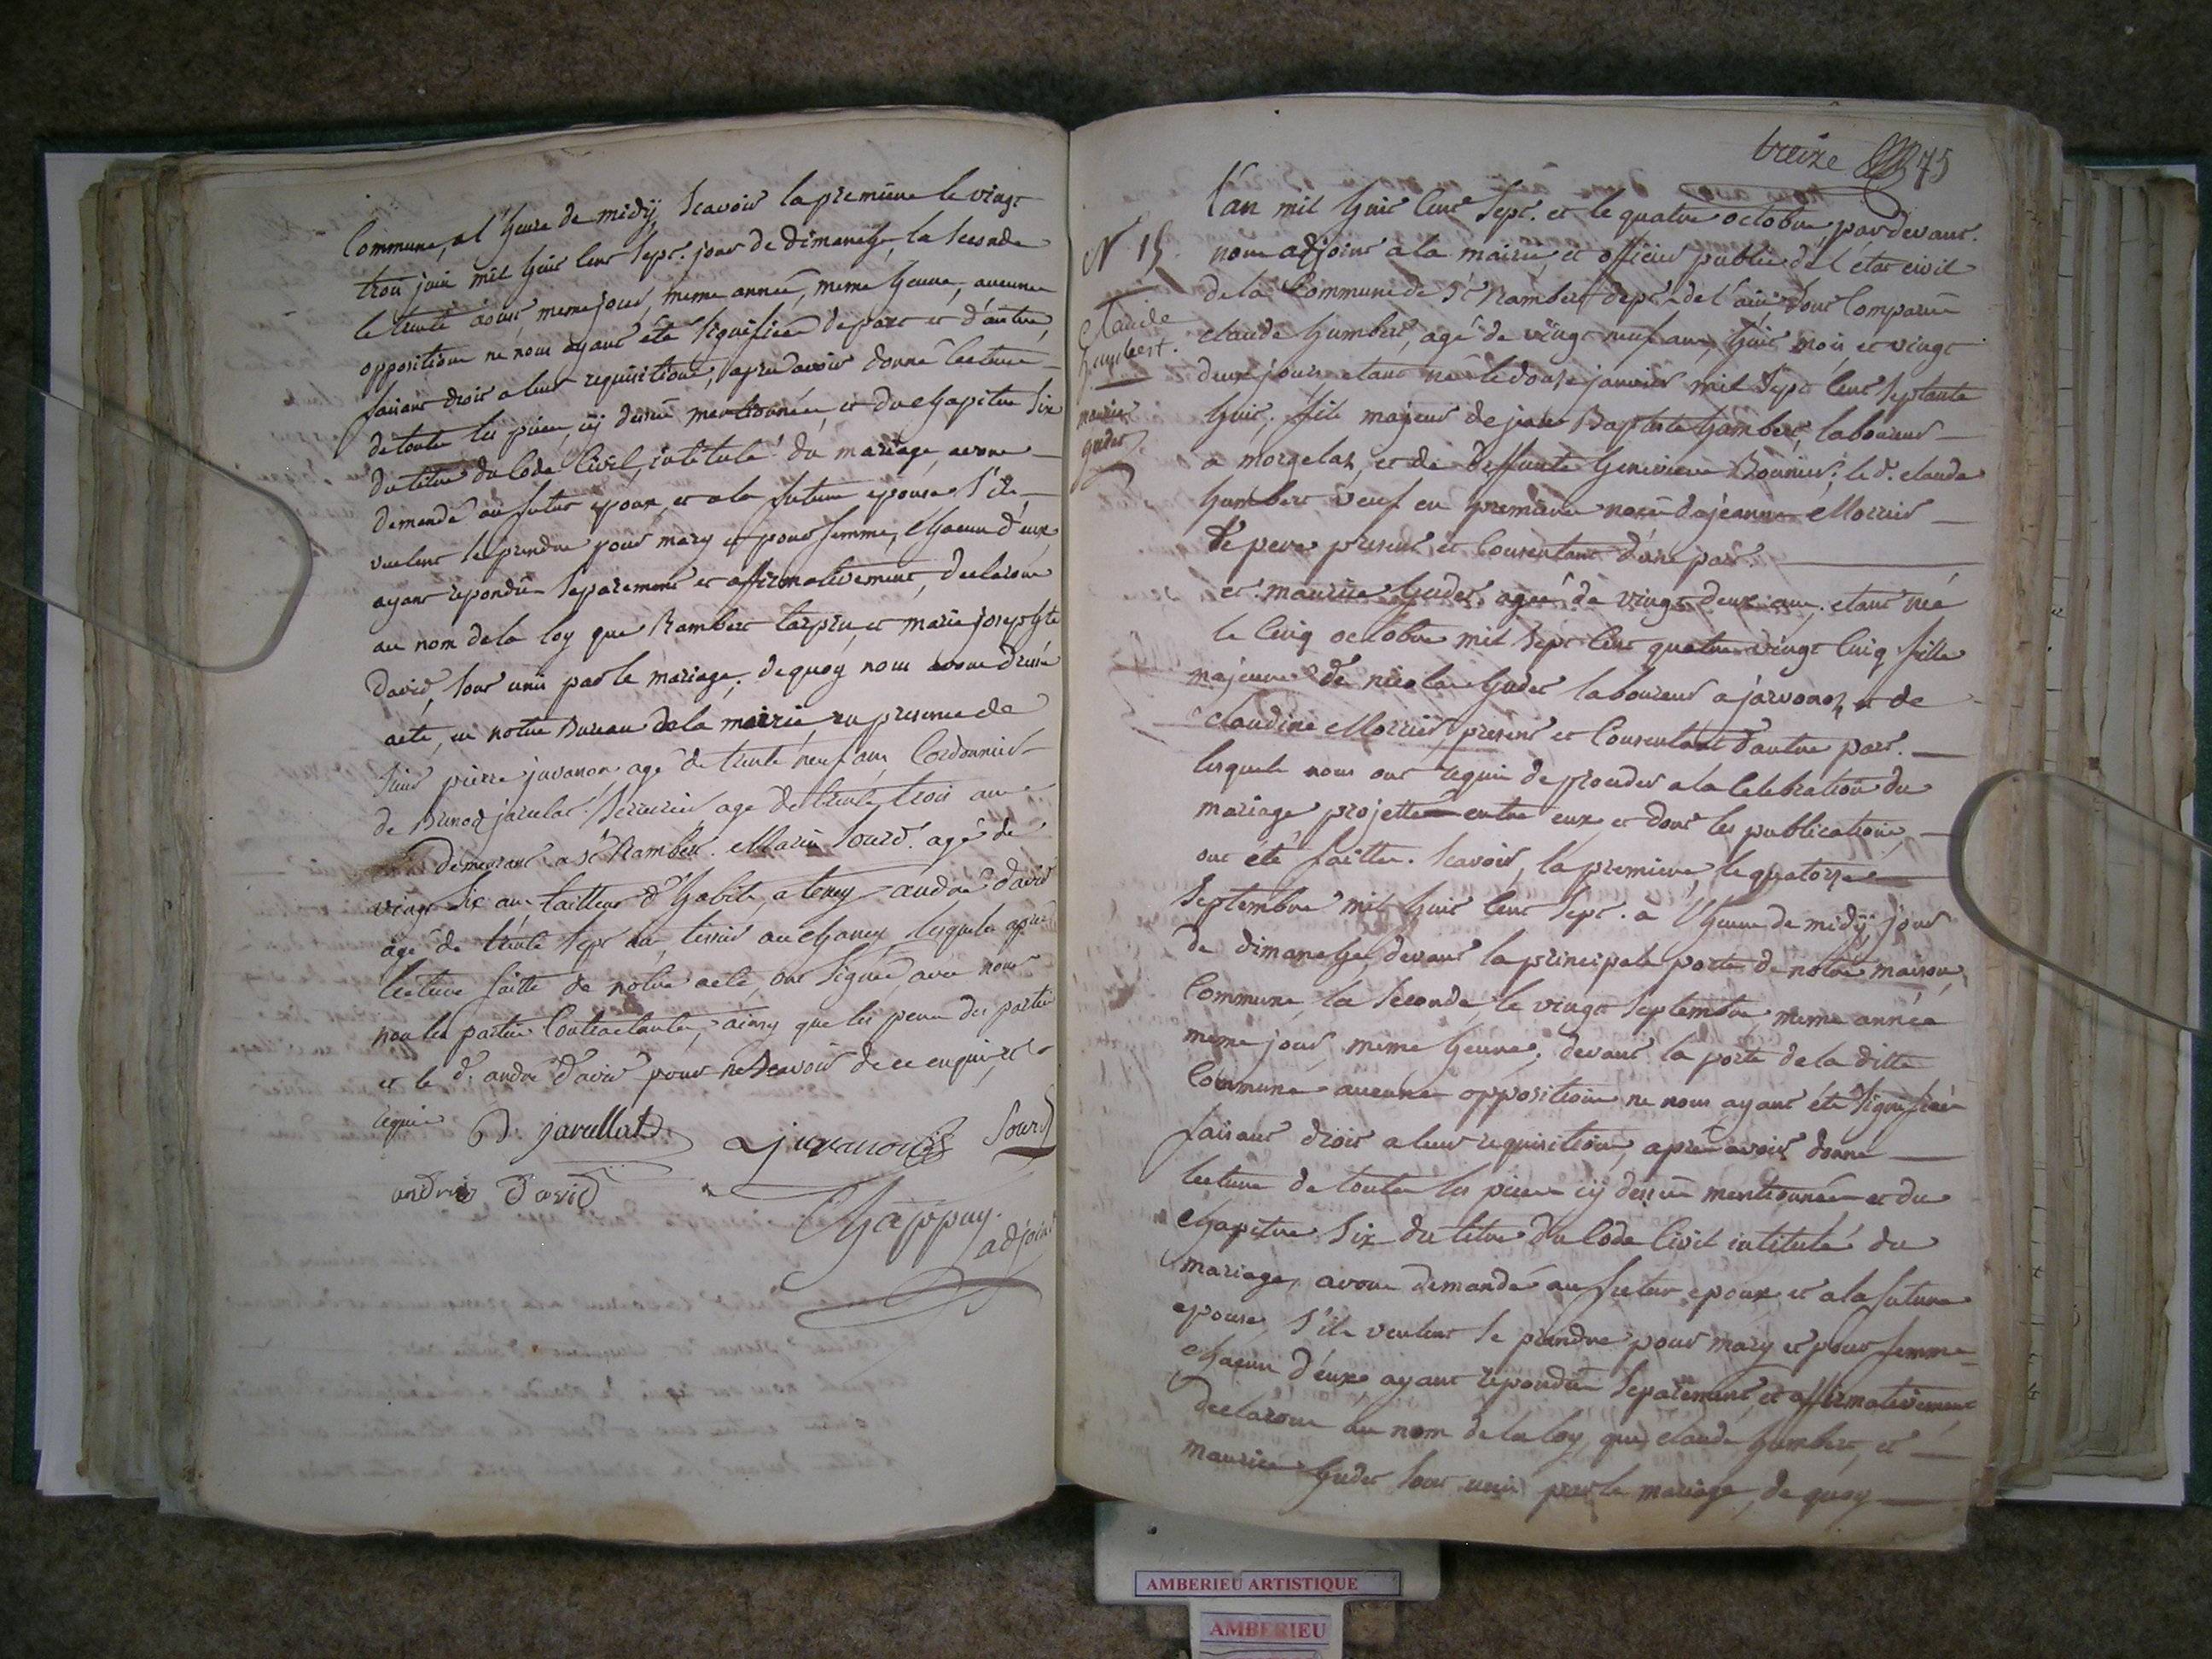 Commune, a l'heure de midy, Scavoir la premiere le vingt
trois juin mil huit cent Sept. jour de dimanche, la Seconde
le trente aoust, meme jour, meme année, meme heure, aucune
opposition ne nous ayant été Signifiée de part et d'autre,
faisant droit a leur requisition, apres avoir donné lecture
de toute les pieces cy dessus mentionnées et du chapitre Six
du titre du Code Civil, intitulé du mariage, avons
demandé au futur epoux et a la future epouse S'ils
veulent se prendre pour mary et pour femme, chacun d'eux
ayant repondu Separement et affirmativement, declarons
au nom de la loy que Rambert et marie josephte
David, Sont unis par le mariage, de quoy nous avons dressé
acte, en notre Bureau de la mairie, en presence de
Sieur pierre juvanon agé de trente neuf ans, Cordonnier
de Benoit jarullat Serrurier agé de trente trois ans
demeurant a St Rambert. Marin Sourd. agé de
vingt Six ans tailleur d'habits, a tenay andré david
agé de trente Sept ans, tissier au chaney lesquels apres
lecture faitte de notre acte, ont Signée avec nous
non les parties Contractantes, ainsy que les peres des parties
et le d. andré david pour ne Scavoir de ce enquis et
requis B. jarullat juvanon Sourd
andrés David
Chappuy.
adjoint
treize 75
L'an mil huit cent Sept. et le quatre octobre pardevant.
N 15. nous adjoint a la mairie, et officier public de l'état civil
de la Commune de St Rambert dept. de l'ain, Sont Comparus
Claude
humbert.
claude humbert, agé de vingt neuf ans, huit mois et vingt
deux jours etant né le douze janvier mil Sept cent Septante
maurice
guder
huit. fils majeur de jean Baptiste humbert, laboureur
a morgelas, et de deffunte Genevieve Bounier; le d. claude
humbert veuf en premiere noces de jeanne Morrier
le pere present et Consentant d'une part.
et maurice guder, agée de vingt deux ans, etant née
le Cinq octobre mil Sept cent quatre vingt Cinq fille
majeure de nicolas guder laboureur a javornoz, et de
claudine Morrier, present et Consentant d'autre part.
lesquels nous ont requis de proceder a la Celebration du
mariage projetté entre eux et dont les publications,
ont été faittes. Scavoir, la premiere, le quatorze
Septembre mil huit cent Sept. a l'heure de midy, jour
de dimanche, devant la principale porte de notre maison
Commune, la Seconde, le vingt Septembre, meme année
meme jour, meme heure, devant la porte de la ditte
Commune aucune opposition ne nous ayant été Signifiée
faisant droit a leur requisition, apres avoir donné
lecture de toute les pieces cy dessus mentionnées et du
chapitre Six du titre du Code Civil intitulé du
mariage, avons demandé au futur epoux et a la future
epouse, S'ils veulent se prendre pour mary et pour femme
chacun d'eux ayant repondu Separement et affirmativement
declarons au nom de la loy, que claude humbert, et
maurice guder Sont unis par le mariage, de quoy
AMBERIEU ARTISTIQUE
AMBERIEU